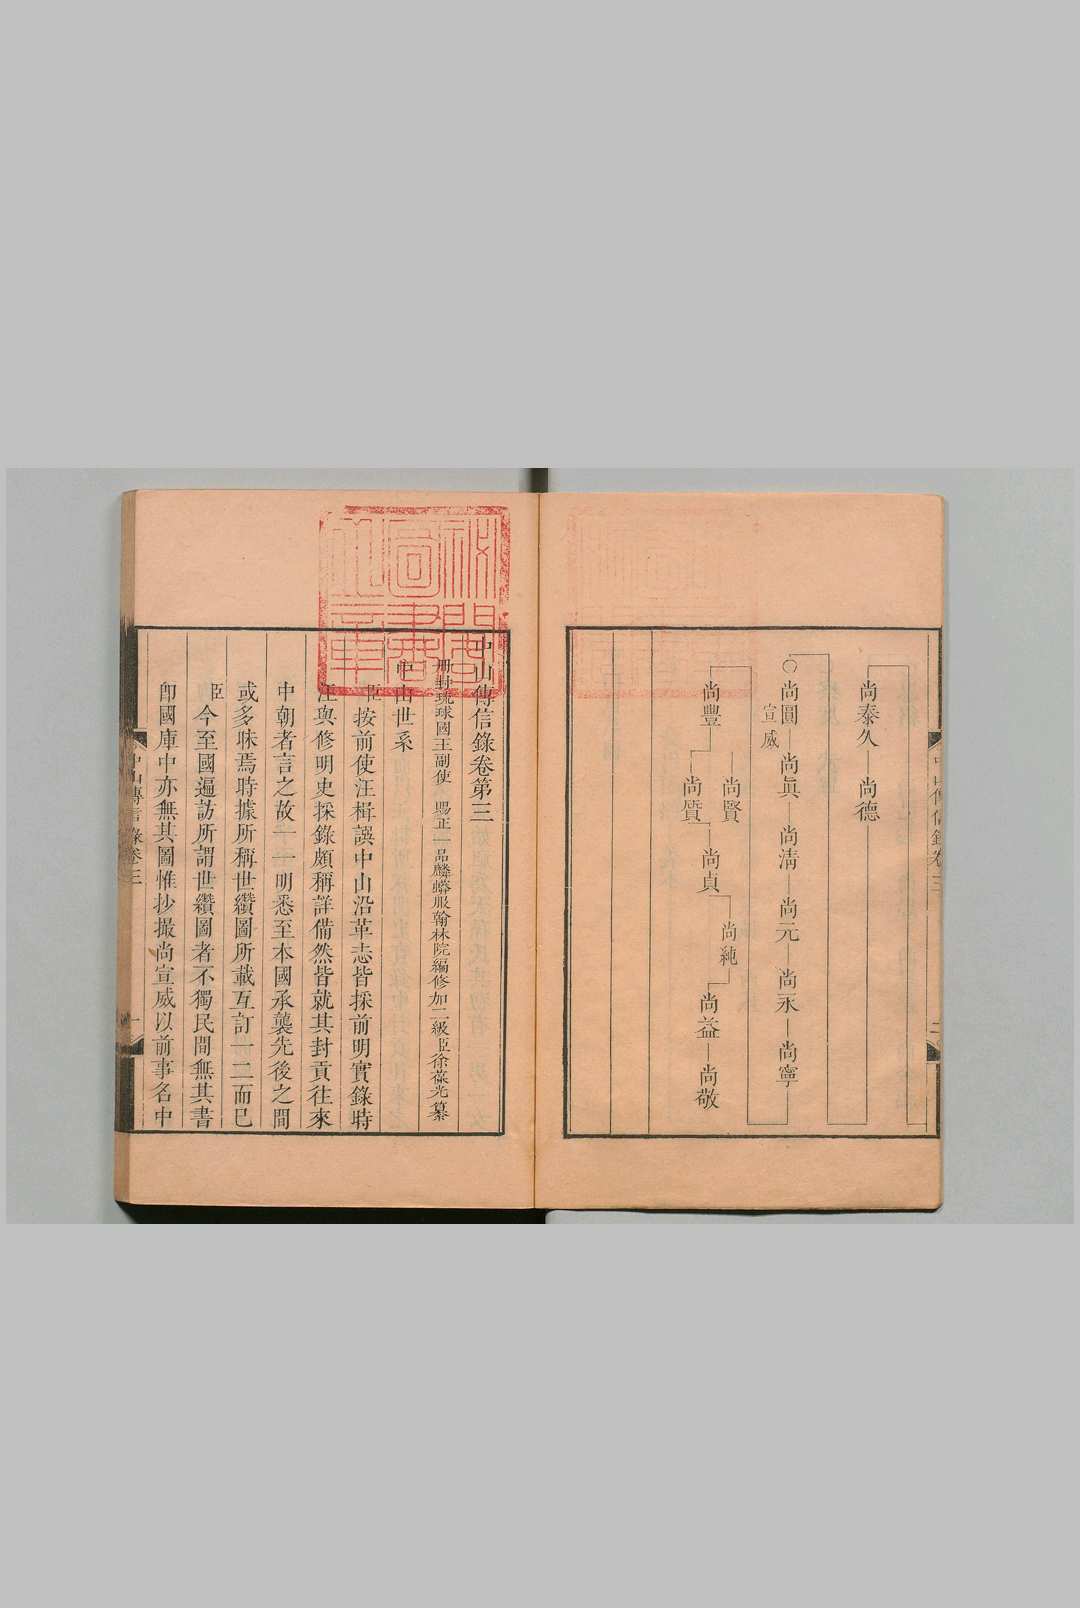 尚泰久 尚德
○尚圓 尚眞 尚清 尚元 尚永 尚寧
宣威
尚賢 尚純
尚豐 尚貞 尚益 尚敬
尚質
中山傳信錄卷第三
冊封琉球國王副使 賜正一品麟蟒服翰林院編修加二級臣徐葆光纂
中山世系
臣按前使汪楫譔中山沿革志皆採前明實錄時
汪與修明史採錄頗稱詳備然皆就其封貢往來
中朝者言之故一一明悉至本國承襲先後之間
或多昧焉時據所稱世纘圖所載互訂一二而已
臣今至國遍訪所謂世纘圖者不獨民間無其書
卽國庫中亦無其圖惟抄撮尚宣威以前事名中
中山傳信錄卷三
一